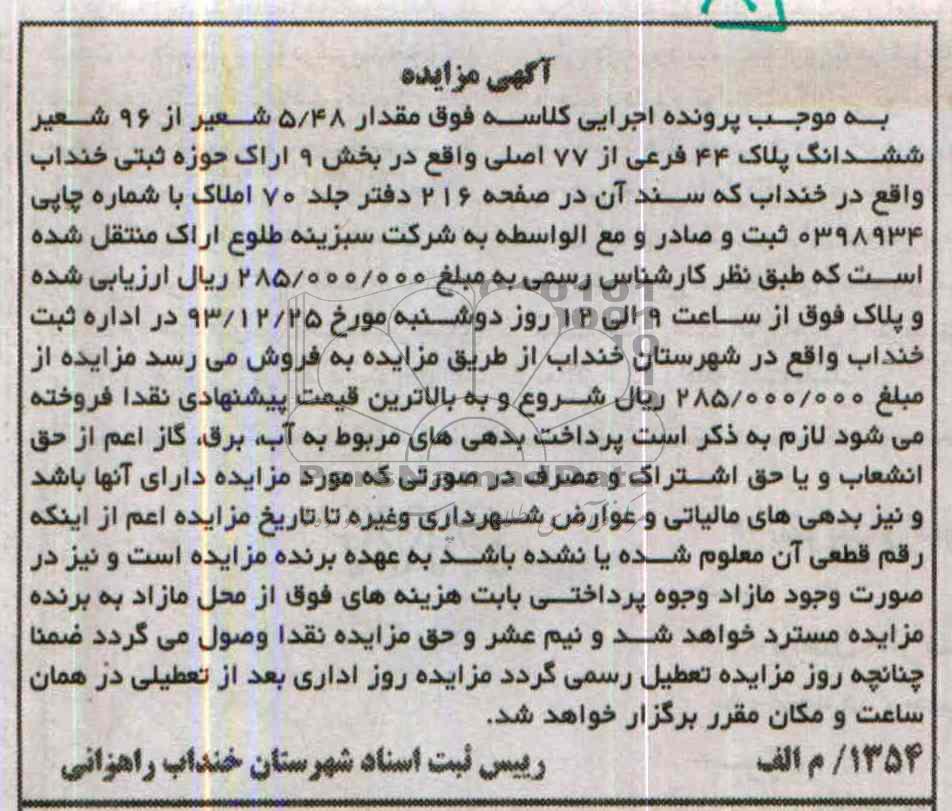 آگهی مزایده
به موجب پرونده اجرایی کلاسه فوق مقدار ۵/۴۸ شعیر از ۹۶ شعیر
ششدانگ پلاک ۴۴ فرعی از ۷۷ اصلی واقع در بخش ۹ اراک حوزه ثبتی خنداب
واقع در خنداب که سند آن در صفحه ۲۱۶ دفتر جلد ۷۰ املاک با شماره چاپی
۰۳۹۸۹۳۴ ثبت و صادر و مع الواسطه به شرکت سبزینه طلوع اراک منتقل شده
است که طبق نظر کارشناس رسمی به مبلغ ۲۸۵/۰۰۰/۰۰۰ ریال ارزیابی شده
و پلاک فوق از ساعت ۹ الی ۱۲ روز دوشنبه مورخ ۹۳/۱۲/۲۵ در اداره ثبت
خنداب واقع در شهرستان خنداب از طریق مزایده به فروش می رسد مزایده از
مبلغ ۲۸۵/۰۰۰/۰۰۰ ریال شروع و به بالاترین قیمت پیشنهادی نقدا فروخته
می شود لازم به ذکر است پرداخت بدهی های مربوط به آب، برق، گاز اعم از حق
انشعاب و یا حق اشتراک و مصرف در صورتی که مورد مزایده دارای آنها باشد
و نیز بدهی های مالیاتی و عوارض شهرداری وغیره تا تاریخ مزایده اعم از اینکه
رقم قطعی آن معلوم شده یا نشده باشد به عهده برنده مزایده است و نیز در
صورت وجود مازاد وجوه پرداختی بابت هزینه های فوق از محل مازاد به برنده
مزایده مسترد خواهد شد و نیم عشر و حق مزایده نقدا وصول می گردد ضمنا
چنانچه روز مزایده تعطیل رسمی گردد مزایده روز اداری بعد از تعطیلی در همان
ساعت و مکان مقرر برگزار خواهد شد.
۱۳۵۴/ م الف رییس ثبت اسناد شهرستان خنداب راهزانی
ParsNamadData